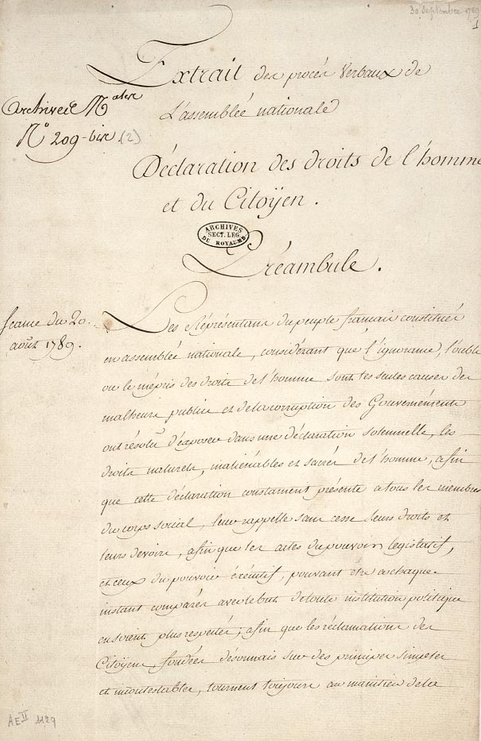 30 Septembre 1789
1
Extrait des procès Verbaux de
L'assemblée nationale
archives N.ales
N° 209-bis (2)
Déclaration des droits de l'homme
et du Citoÿen.
ARCHIVES
SECT. LEG.
DU ROYAUME
Préambule.
seance du 20.
août 1789.
Les Réprésentans du peuple francais constitués
en assemblée nationale, considérant que l'ignorance, l'oubli
ou le mépris des droits de l'homme sont les seules causes des
malheurs publics et de la corruption des Gouvernements
ont résolu d'exposer dans une déclaration solemnelle, les
droits naturels, inaliénables et sacrés de l'homme, afin
que cette déclaration constament présente a tous les membres
du corps social, leur rappelle sans cesse leurs droits et
leurs devoirs, afin que les actes du pouvoir legislatif,
et ceux du pouvoir éxécutif, pouvant être a chaque
instant comparés avec le but de toute institution politique
en soient plus respectés; afin que les réclamations des
Citoÿens, fondées désormais sur des principes simples
et incontestables, tournent toujours au maintien de la
AE II 1129